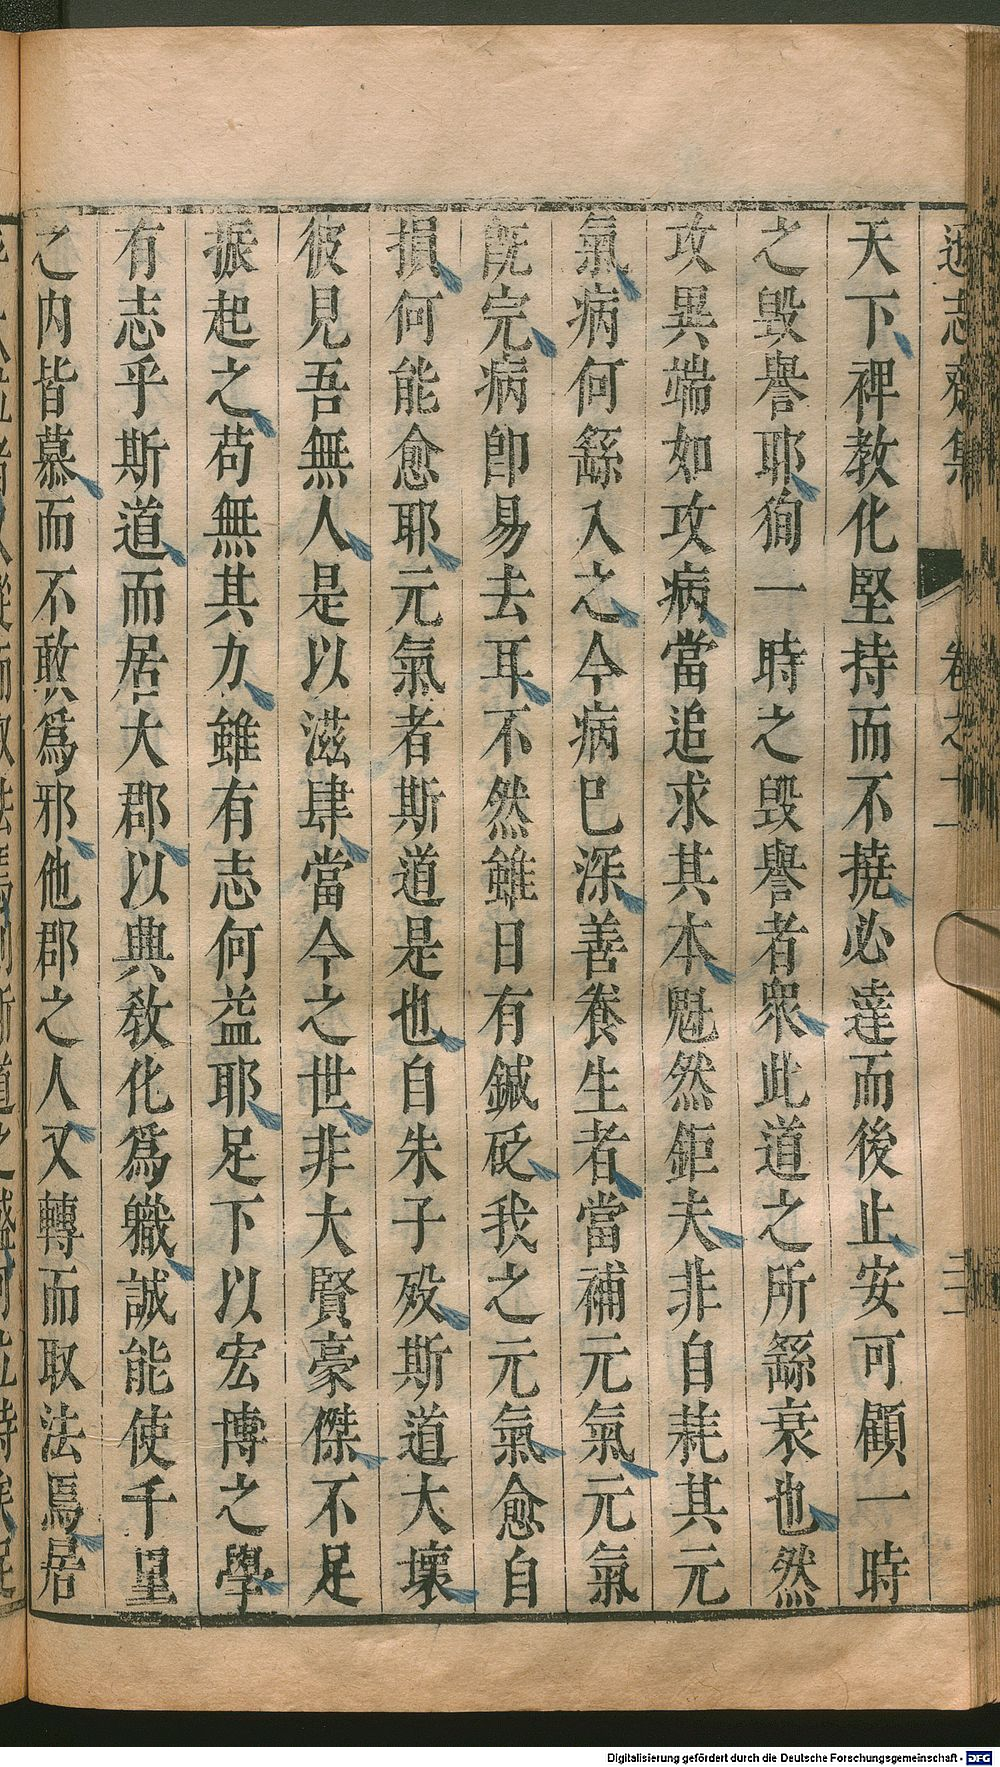 遜志齋集 卷之十一
天下裨教化堅持而不撓必達而後止安可顧一時
之毀譽耶狥一時之毀譽者衆此道之所繇衰也然
攻異端如攻病當追求其本魁然鉅夫非自耗其元
氣病何繇入之今病巳深善養生者當補元氣元氣
既完病卽易去耳不然雖日有鍼砭我之元氣愈自
損何能愈耶元氣者斯道是也自朱子歿斯道大壞
彼見吾無人是以滋肆當今之世非大賢豪傑不足
振起之茍無其力雖有志何益耶足下以宏博之學
有志乎斯道而居大郡以典敎化爲職誠能使千里
之内皆慕而不敢爲邪他郡之人又轉而取法焉居
Digitalisierung gefördert durch die Deutsche Forschungsgemeinschaft - DFG